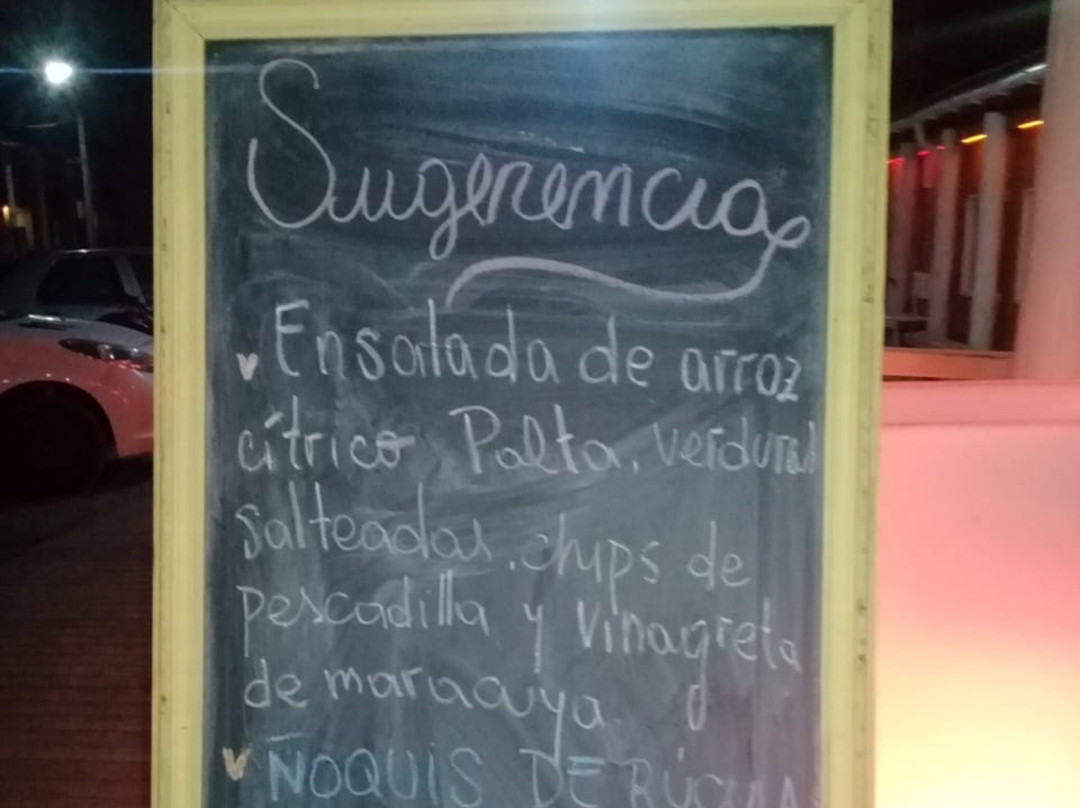 Sugerencia
Ensalada de arroz
cítrico Palta, verduras
salteadas, chips de
pescadilla y vinagreta
de maracuya
ÑOQUIS DE RÚCULA